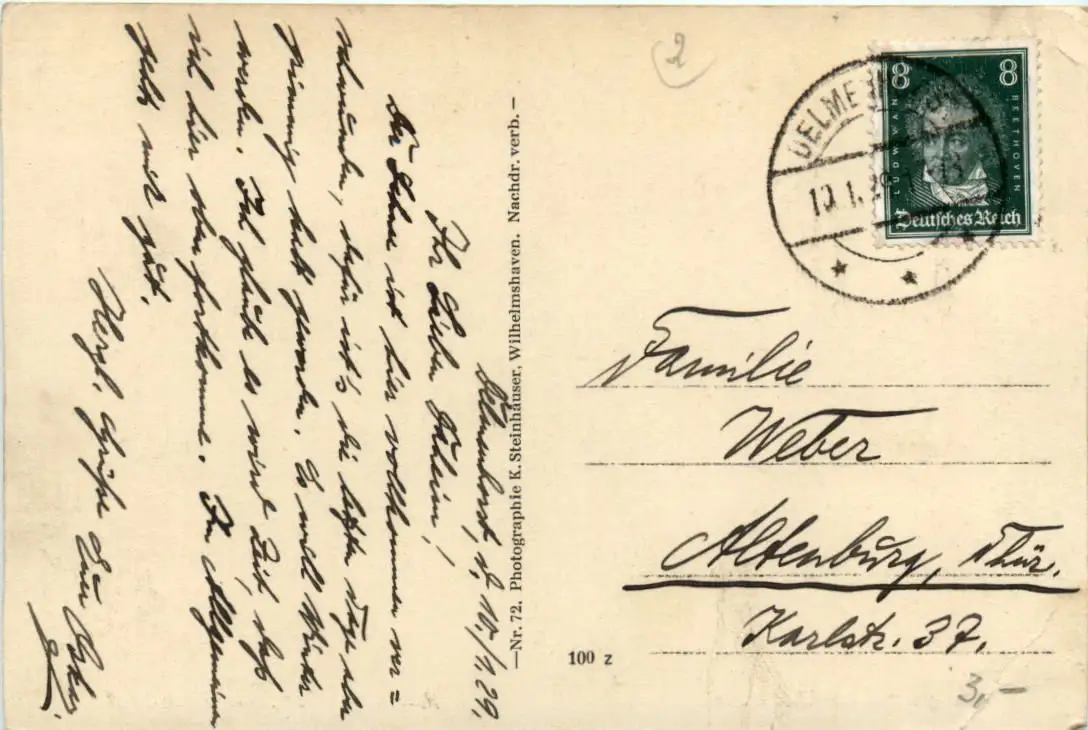 Delmenhorst, d. 10./1.29.
Ihr Lieben Daheim!
Der Schnee ist hier vollkommen ver=
schwunden, dafür ist's die letzten Tage aber
grimmig kalt geworden. Es will Winter
werden. Ich glaube es wird Zeit, daß
ich hier oben fortkomme. Im Allgemeinen
geht's mir gut.
Herzl. Grüße Euer
—Nr. 72. Photographie K. Steinhäuser, Wilhelmshaven. Nachdr. verb.—
2
8 8
LUDW. VAN BEETHOVEN
Deutsches Reich
DELME
10.1.29
Familie
Weber
Altenburg, Thür.
Karlstr. 37.
100 z
3,-